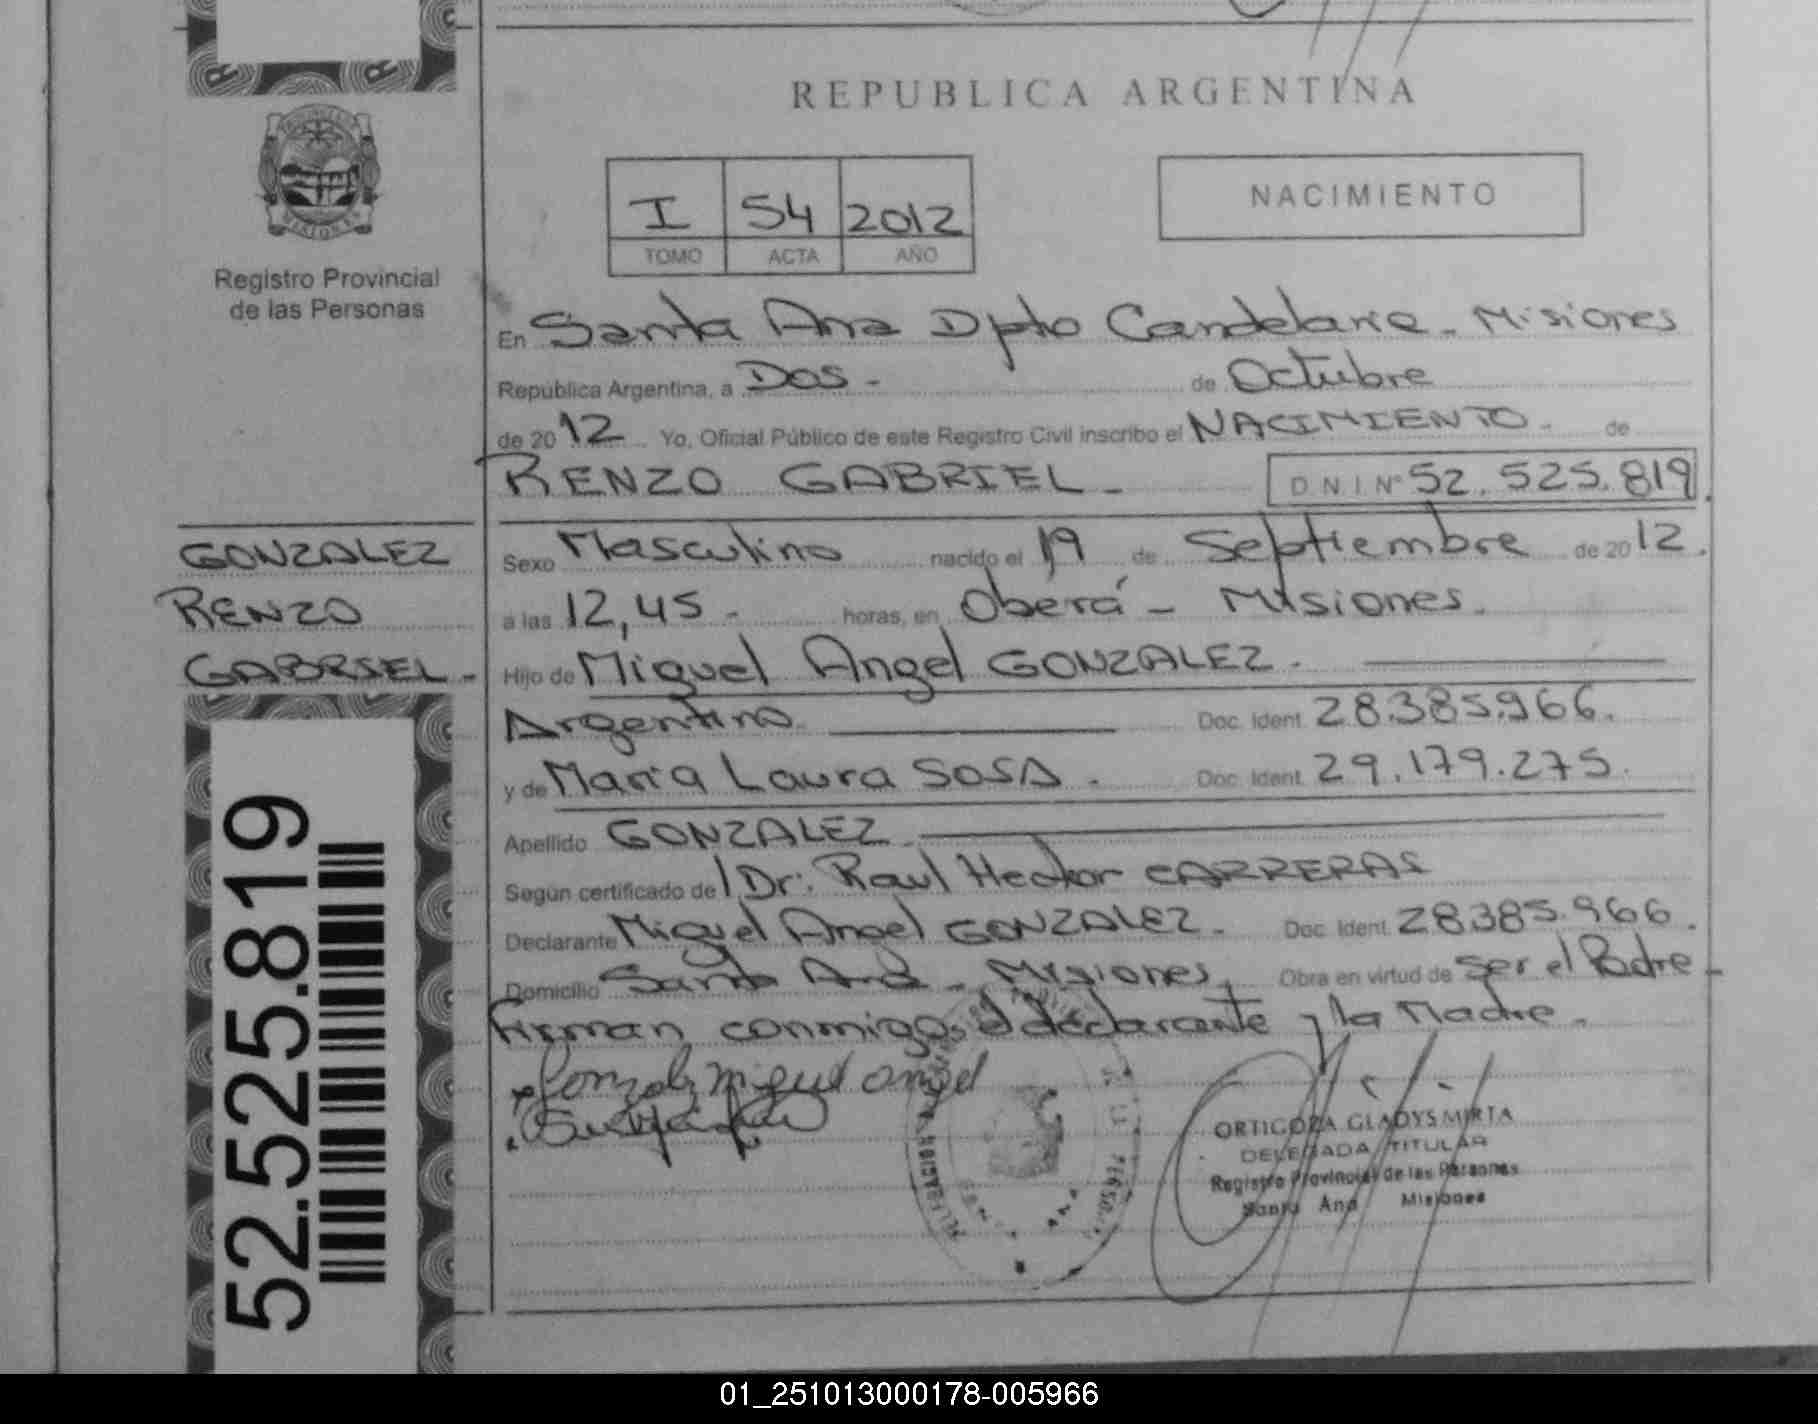 REPUBLICA ARGENTINA
NACIMIENTO
I 54 2012
TOMO ACTA AÑO
Registro Provincial
de las Personas
En Santa Ana Dpto Candelaria - Misiones
República Argentina, a Dos - de Octubre
de 2012 Yo, Oficial Público de este Registro Civil inscribo el NACIMIENTO - de
RENZO GABRIEL - D.N.I. N° 52.525.819
GONZALEZ
RENZO
GABRIEL -
Sexo Masculino nacido el 19 de Septiembre de 2012.
a las 12,45 - horas, en Oberá - Misiones.
Hijo de Miguel Angel GONZALEZ -
Argentino Doc. Ident. 28.385.966.
y de María Laura SOSA - Doc. Ident. 29.179.275.
Apellido GONZALEZ
Según certificado del Dr: Raul Hector CARRERAS
Declarante Miguel Angel GONZALEZ - Doc. Ident. 28385.966.
Domicilio Santa Ana - Misiones, Obra en virtud de ser el Padre -
Firman conmigo, el declarante y la Madre -
Gonzalez Miguel Angel
ORTIGOZA GLADYS MIRTA
DELEGADA TITULAR
Registro Provincial de las Personas
Santa Ana Misiones
52.525.819
01_251013000178-005966